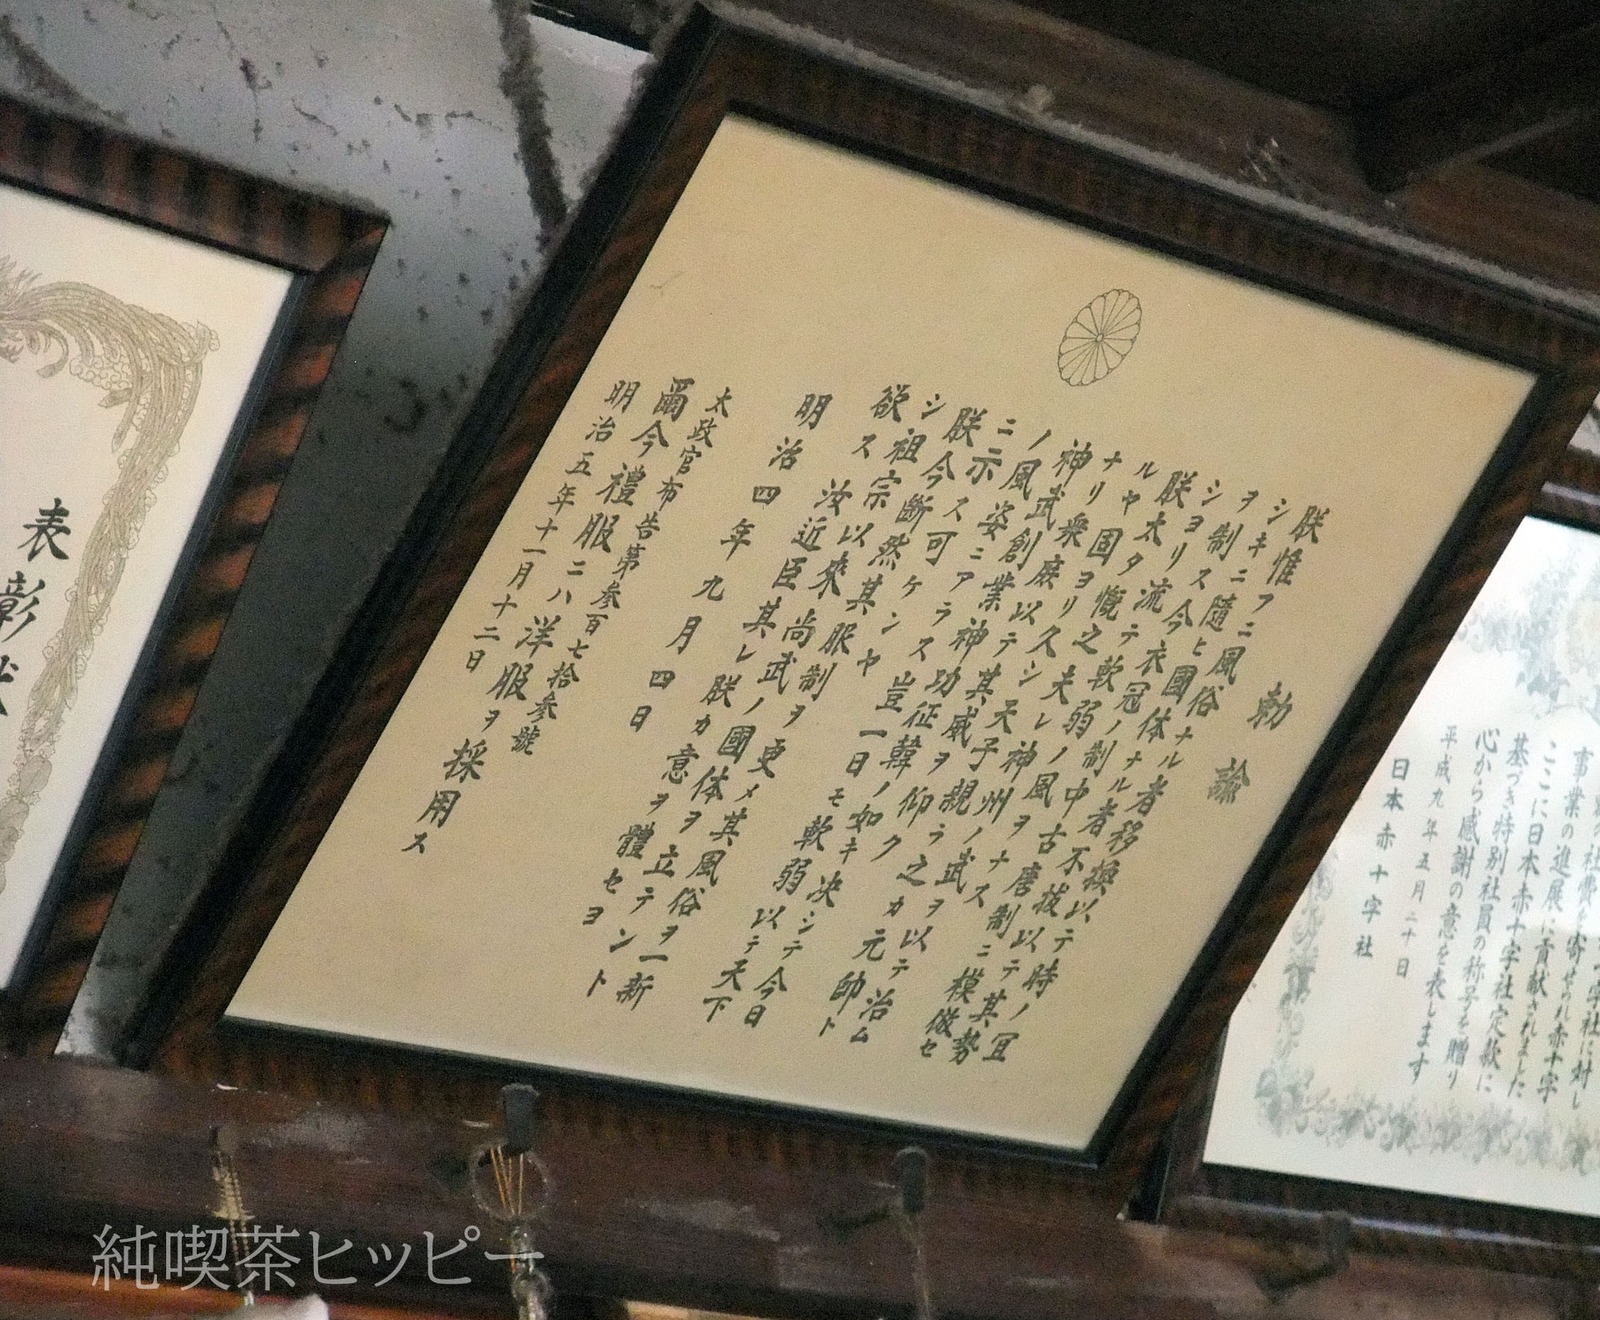 勅諭
朕惟フニ風俗ナル者移換以テ時ノ宜
シキニ隨ヒ國体ナル者不抜以テ其勢
ヲ制ス今衣冠ノ制中古唐制ニ模倣セ
シヨリ流テ軟弱ノ風ヲナス
朕太タ慨之夫レ神州ノ武ヲ以テ治ム
ルヤ固ヨリ久シ天子親ラ之カ元帥ト
ナリ衆庶以テ其威ヲ仰ク
神武創業神功征韓ノ如キ決シテ今日
ノ風姿ニアラス豈一日モ軟弱以テ天下
ニ示ス可ケンヤ
朕今斷然其服制ヲ更メ其風俗ヲ一新
シ祖宗以來尚武ノ國体ヲ立テント
欲ス汝近臣其レ朕カ意ヲ體セヨ
明治四年九月四日
太政官布告第参百七拾参號
爾今禮服ニハ洋服ヲ採用ス
明治五年十一月十二日
事業の進展に貢献されました
ここに日本赤十字社定款に
基づき特別社員の称号を贈り
心から感謝の意を表します
平成九年五月二十日
日本赤十字社
表彰状
純喫茶ヒッピー